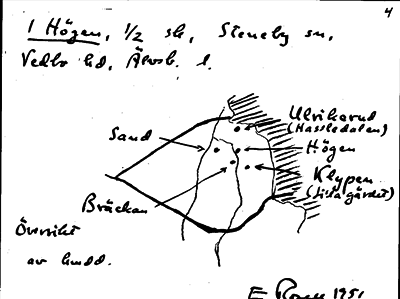 4
1 Högen, 1/2 sk, Steneby sn,
Vedbo hd, Älvsb. l.
Ulriksrud
(Hassledalen)
Sand
Högen
Klypen
(Lillagärdet)
Bräckan
Översikt
av hudd.
E 1951